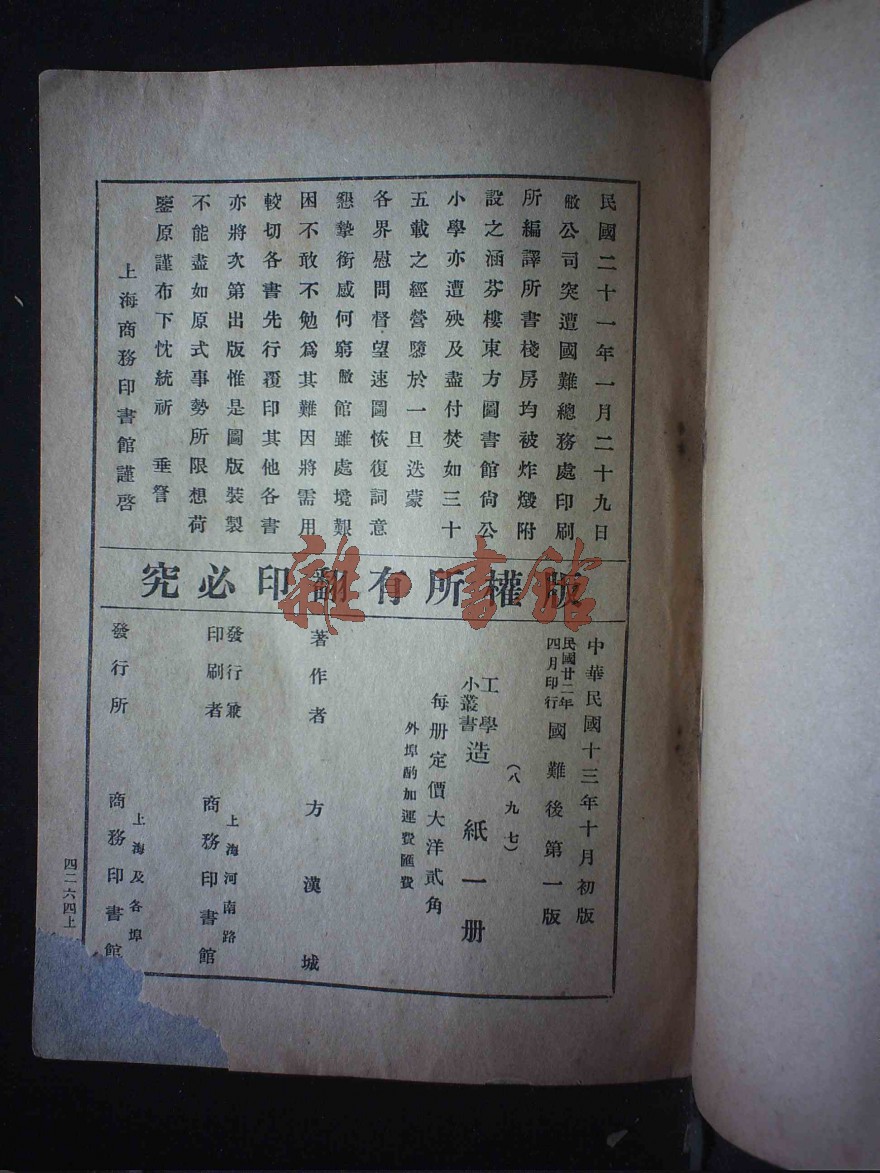 民國二十一年一月二十九日
敝公司突遭國難總務處印刷
所編譯所書棧房均被炸燬附
設之涵芬樓東方圖書館尙公
小學亦遭殃及盡付焚如三十
五載之經營隳於一旦迭蒙
各界慰問督望速圖恢復詞意
懇摯銜感何窮敝館雖處境艱
困不敢不勉爲其難因將需用
較切各書先行覆印其他各書
亦將次第出版惟是圖版裝製
不能盡如原式事勢所限想荷
鑒原謹布下忱統祈 垂詧
上海商務印書館謹啓
版權所有翻印必究
雜·書館
中華民國十三年十月初版
民國廿二年四月印行 國難後第一版
(八九七)
工學小叢書 造紙一册
每册定價大洋貳角
外埠酌加運費匯費
著作者 方漢城
發行兼印刷者 上海河南路 商務印書館
發行所 上海及各埠 商務印書館
四二六四上